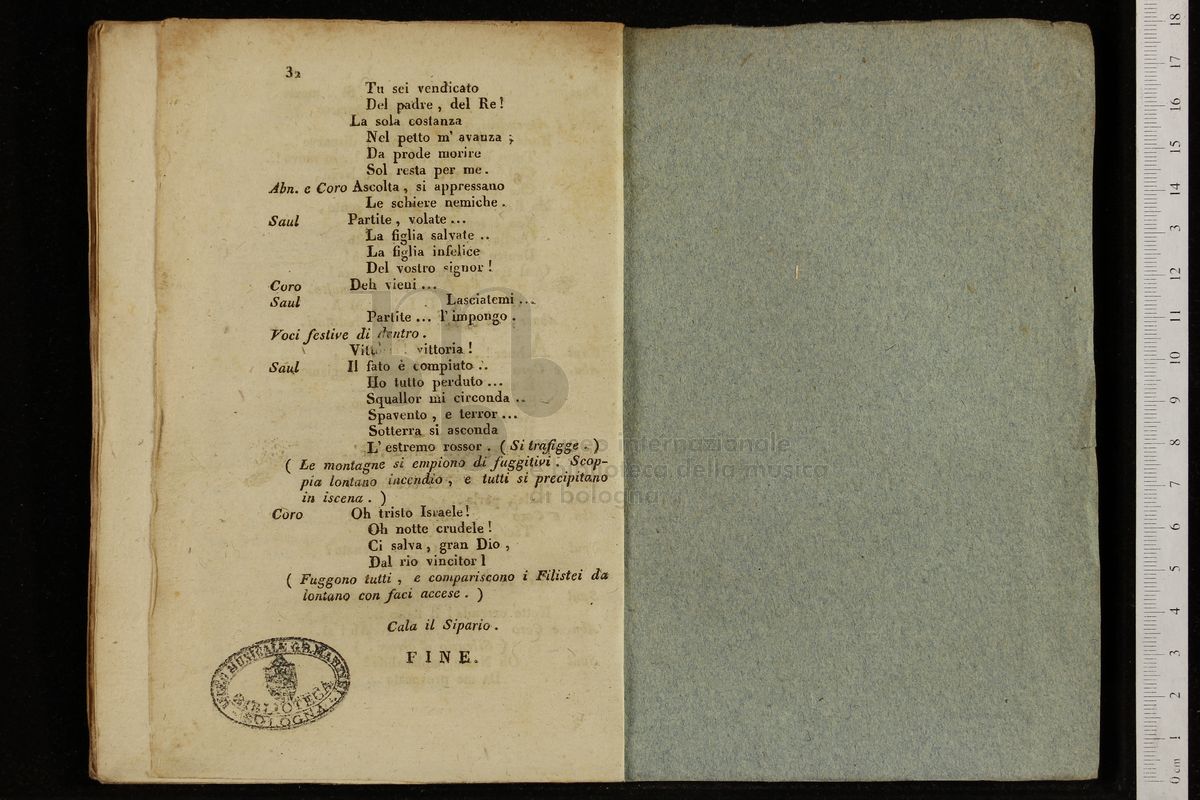 32
Tu sei vendicato
Del padre , del Re !
La sola costanza
Nel petto m' avanza ;
Da prode morire
Sol resta per me .
Abn. e Coro Ascolta , si appressano
Le schiere nemiche .
Saul Partite , volate ...
La figlia salvate ..
La figlia infelice
Del vostro signor !
Coro Deh vieni ...
Saul Lasciatemi ...
Partite ... l' impongo .
Voci festive di dentro .
vittoria !
Saul Il fato è compiuto ..
Ho tutto perduto ...
Squallor mi circonda ..
Spavento , e terror ...
Sotterra si asconda
L' estremo rossor . ( Si trafigge . )
( Le montagne si empiono di fuggitivi . Scop-
pia lontano incendio , e tutti si precipitano
in iscena . )
Coro Oh tristo Israele !
Oh notte crudele !
Ci salva , gran Dio ,
Dal rio vincitor !
( Fuggono tutti , e compariscono i Filistei da
lontano con faci accese . )
Cala il Sipario .
FINE.
LICEO MUSICALE G.B. MARTINI
BIBLIOTECA
BOLOGNA
museo internazionale
e biblioteca della musica
di bologna
0 cm 1 2 3 4 5 6 7 8 9 10 11 12 13 14 15 16 17 18